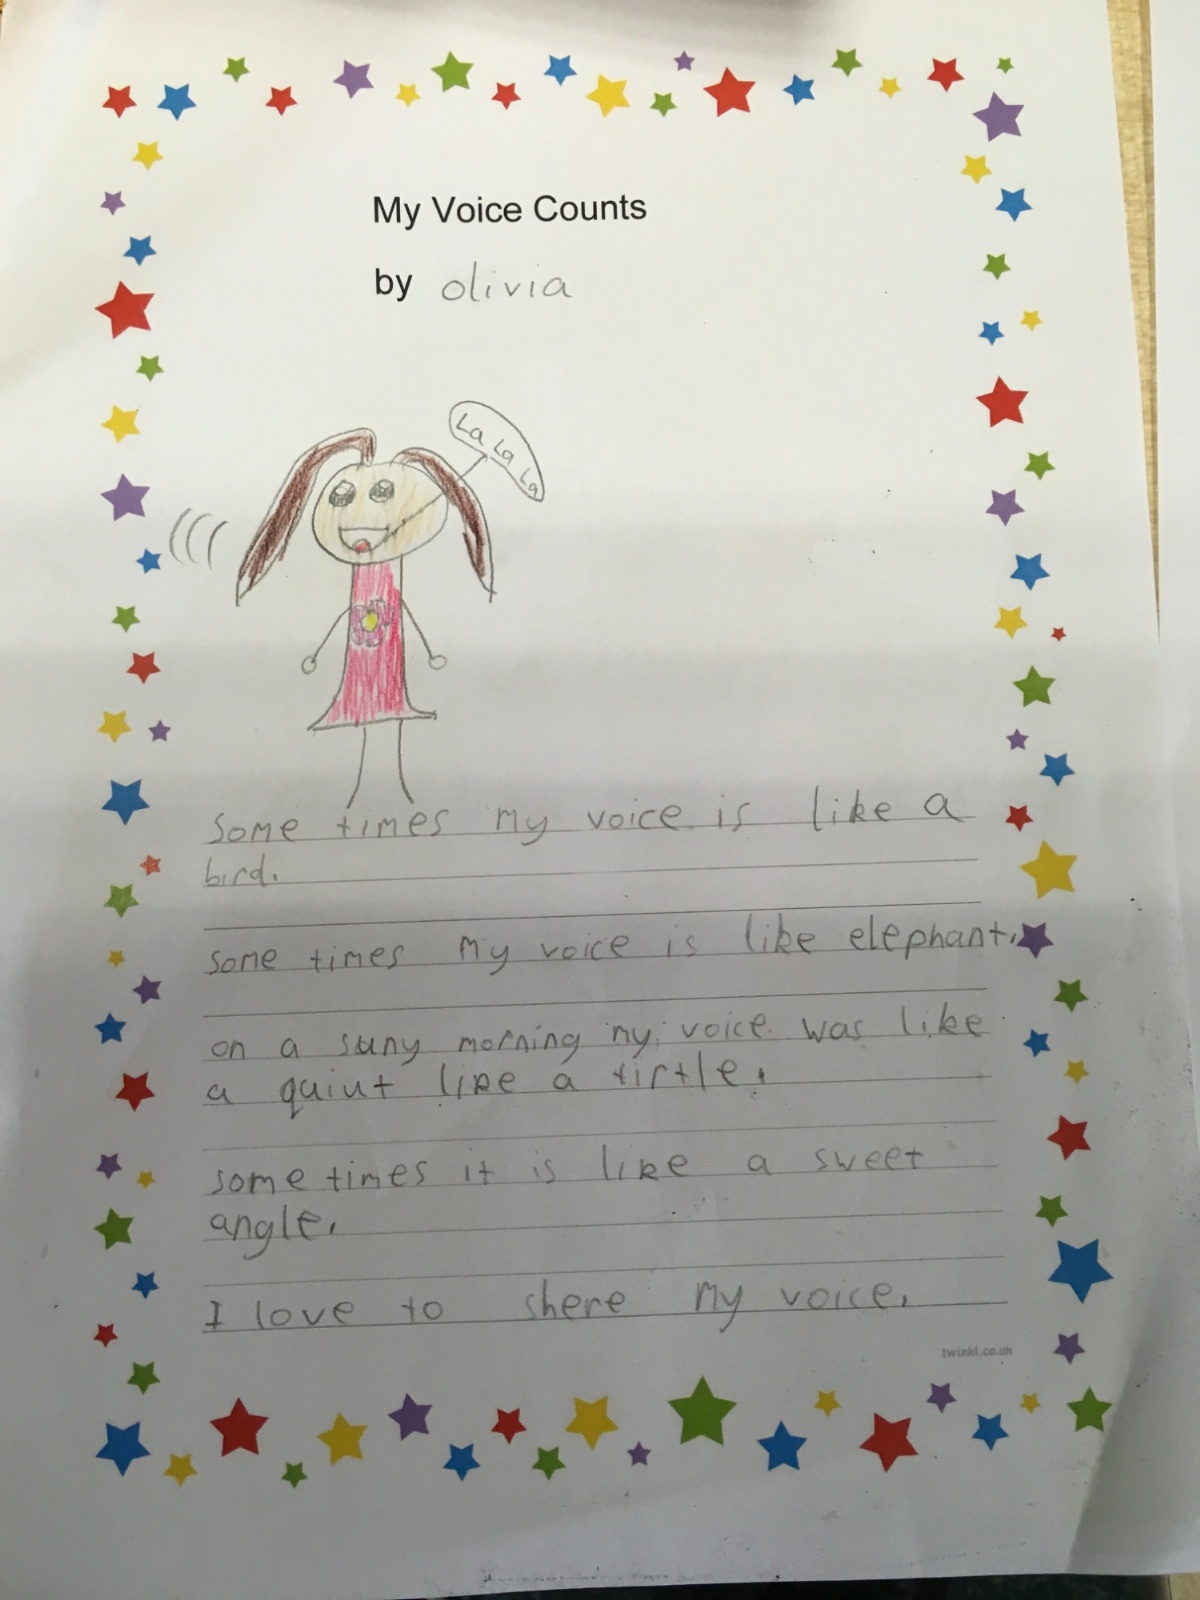 My Voice Counts
by olivia
La La La
Some times my voice is like a
bird.
some times my voice is like elephant.
on a suny morning my voice was like
a quiut like a tirtle.
some times it is like a sweet
angle.
I love to shere my voice.
twinkl.co.uk